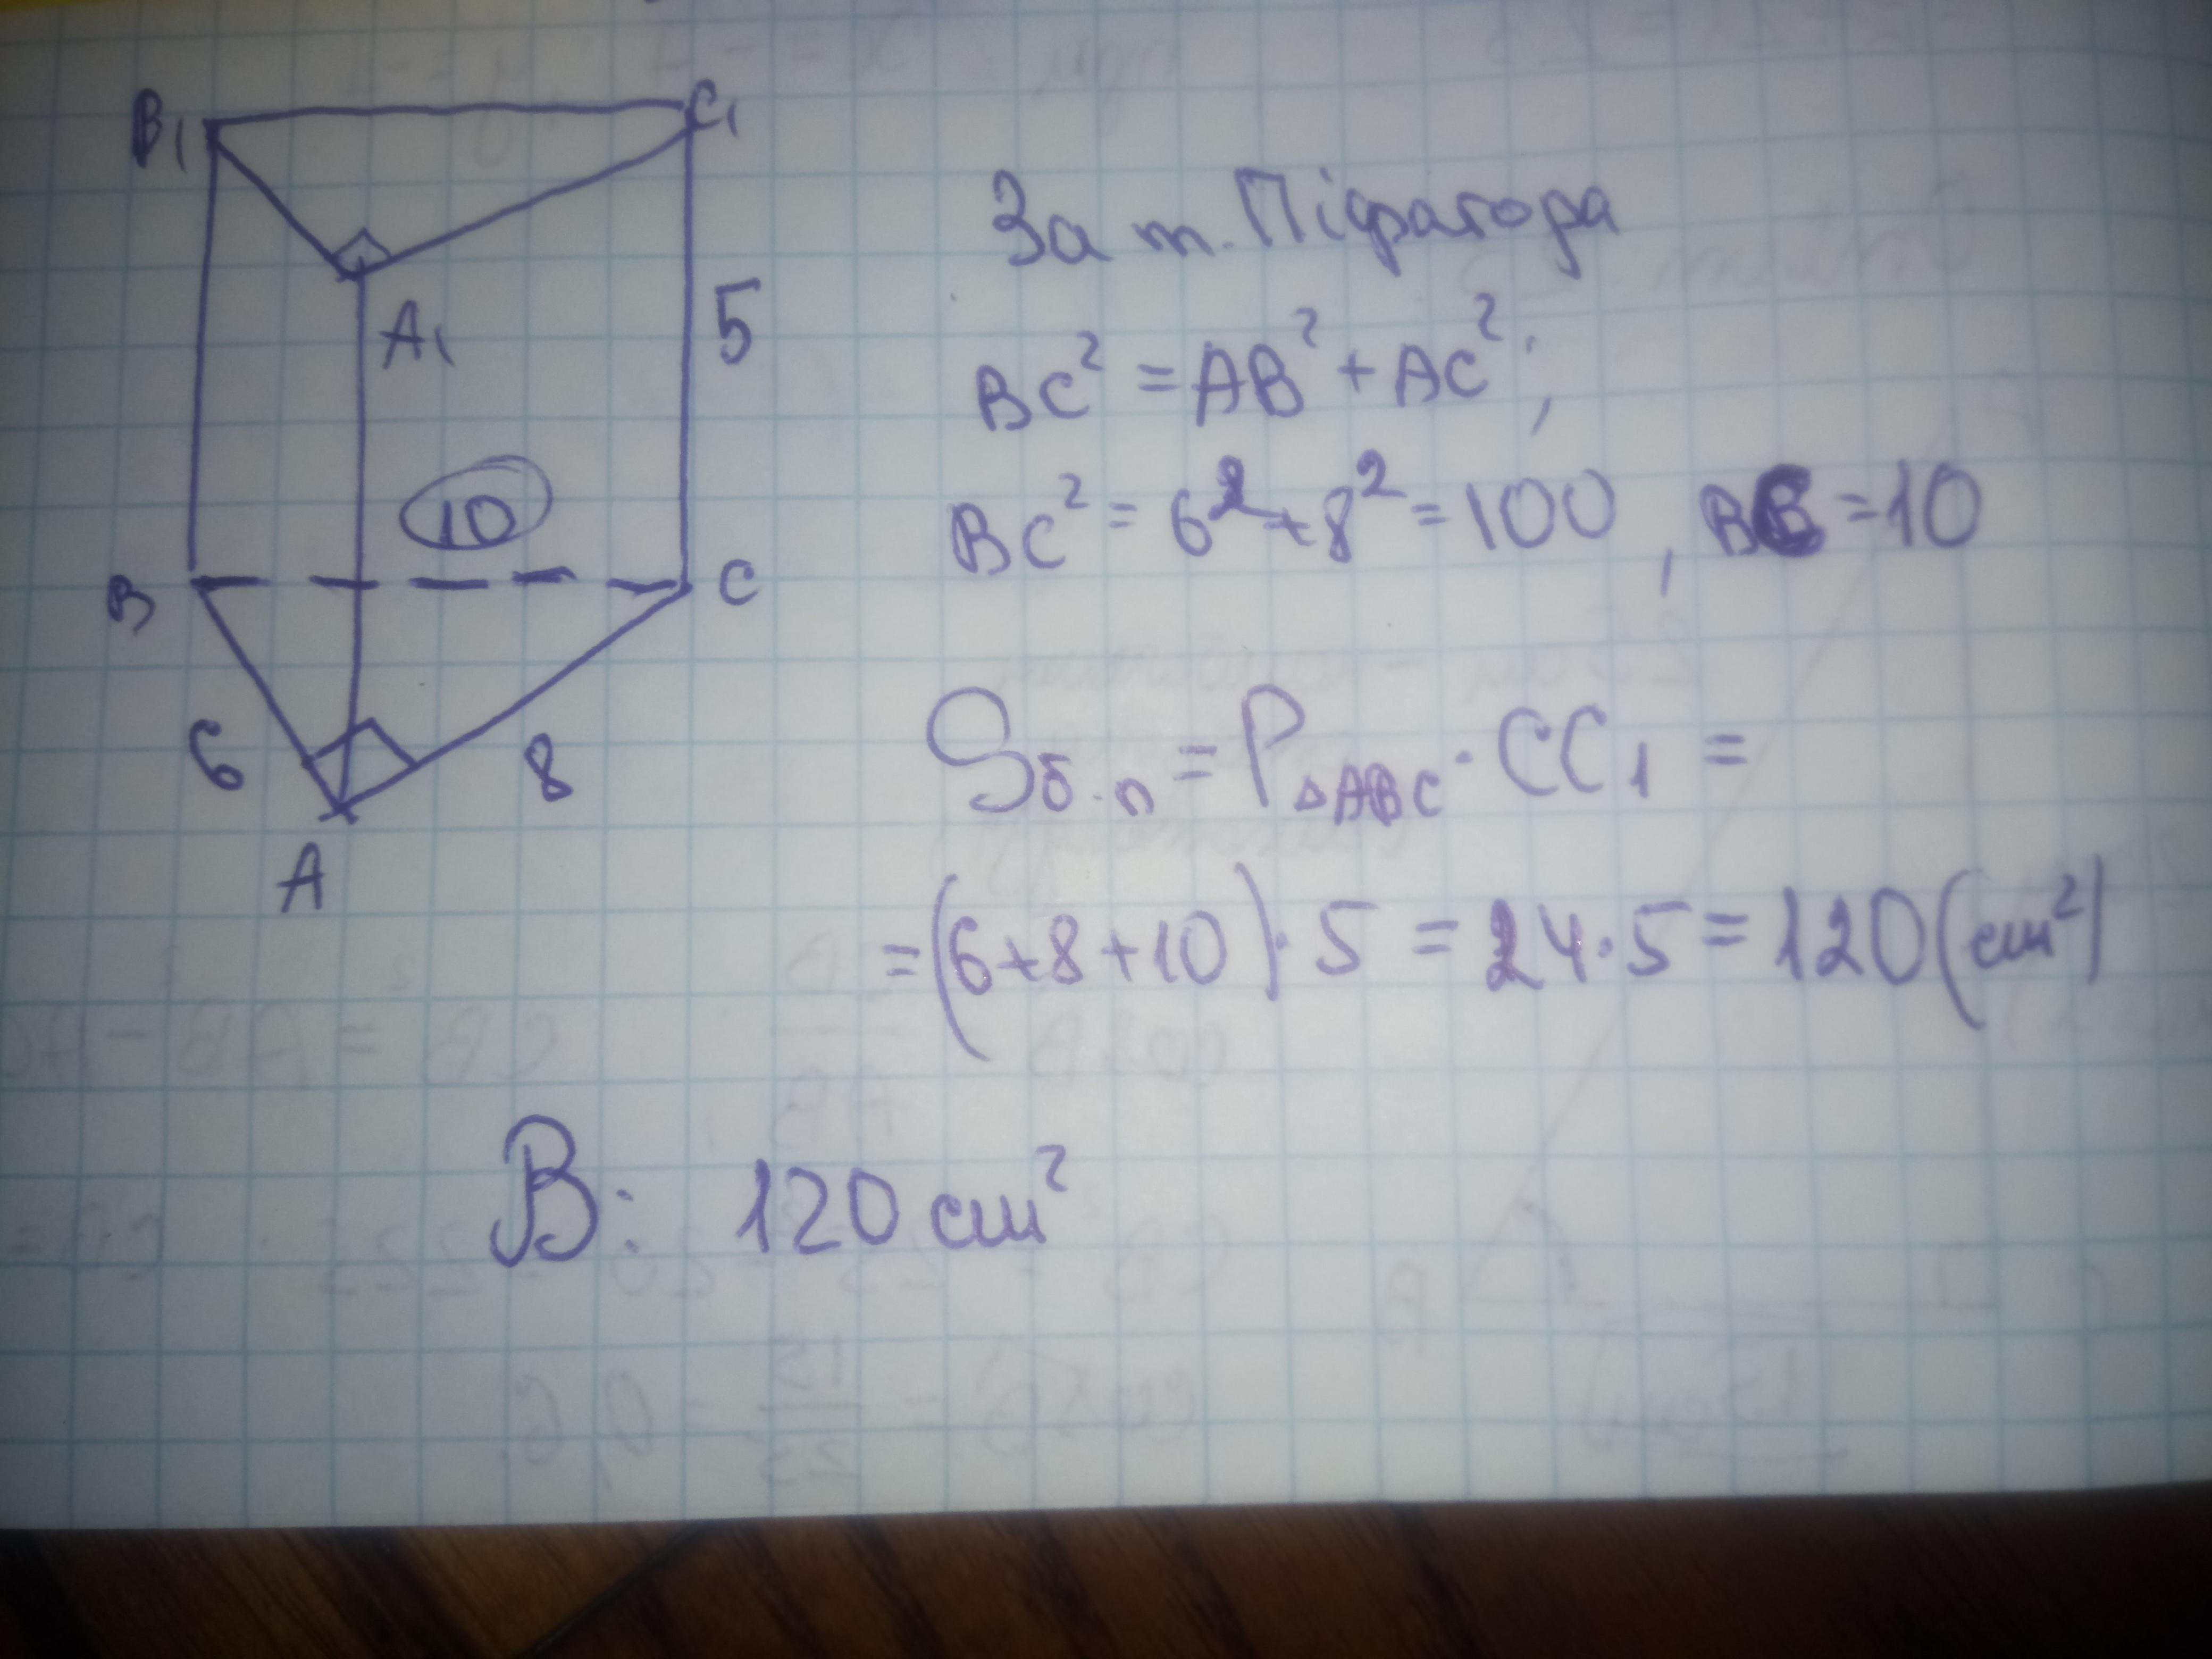 B₁
C₁
A₁
5
10
B
C
6
8
A
За т. Піфагора
BC² = AB² + AC²;
BC² = 6² + 8² = 100, BC = 10
Sб.п = P△ABC · CC₁ =
= (6+8+10) · 5 = 24 · 5 = 120 (см²)
В: 120 см²